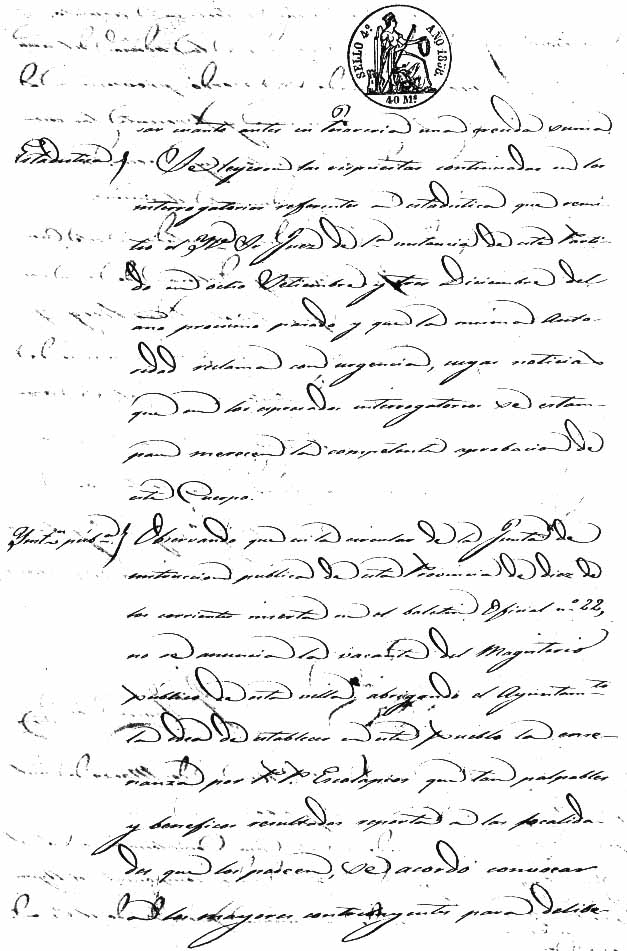 SELLO 4º AÑO 1858.
40 Mˢ
sar cuanto antes en Tesoreria una y
Estadistica } Se leyeron las respuestas continuadas en los
interrogatorios referentes a estadistica que remi-
tió el Sr. Juez de 1ª instancia de este Parti-
do en ocho Setiembre y tres Diciembre del
año proximo pasado y que la misma Auto-
ridad reclama con urgencia, cuyas noticias
que en los expresados interrogatorios se estam-
pan merecen la competente aprobacion de
este Cuerpo.
Instⁿ públⁿ } Observando que en la circular de la Junta de
instruccion publica de esta Provincia de diez de
los corrientes inserta en el boletin Oficial nº 22,
no se anuncia la vacante del Magisterio
publico de esta villa, abrigando el Ayuntamᵗᵒ
la idea de establecer en este Pueblo la ense-
ñanza por P. P. Escolapios que tan palpables
y beneficos resultados reporta a las localida-
des que los poseen, se acordó convocar
a los mayores contribuyentes para delibe-